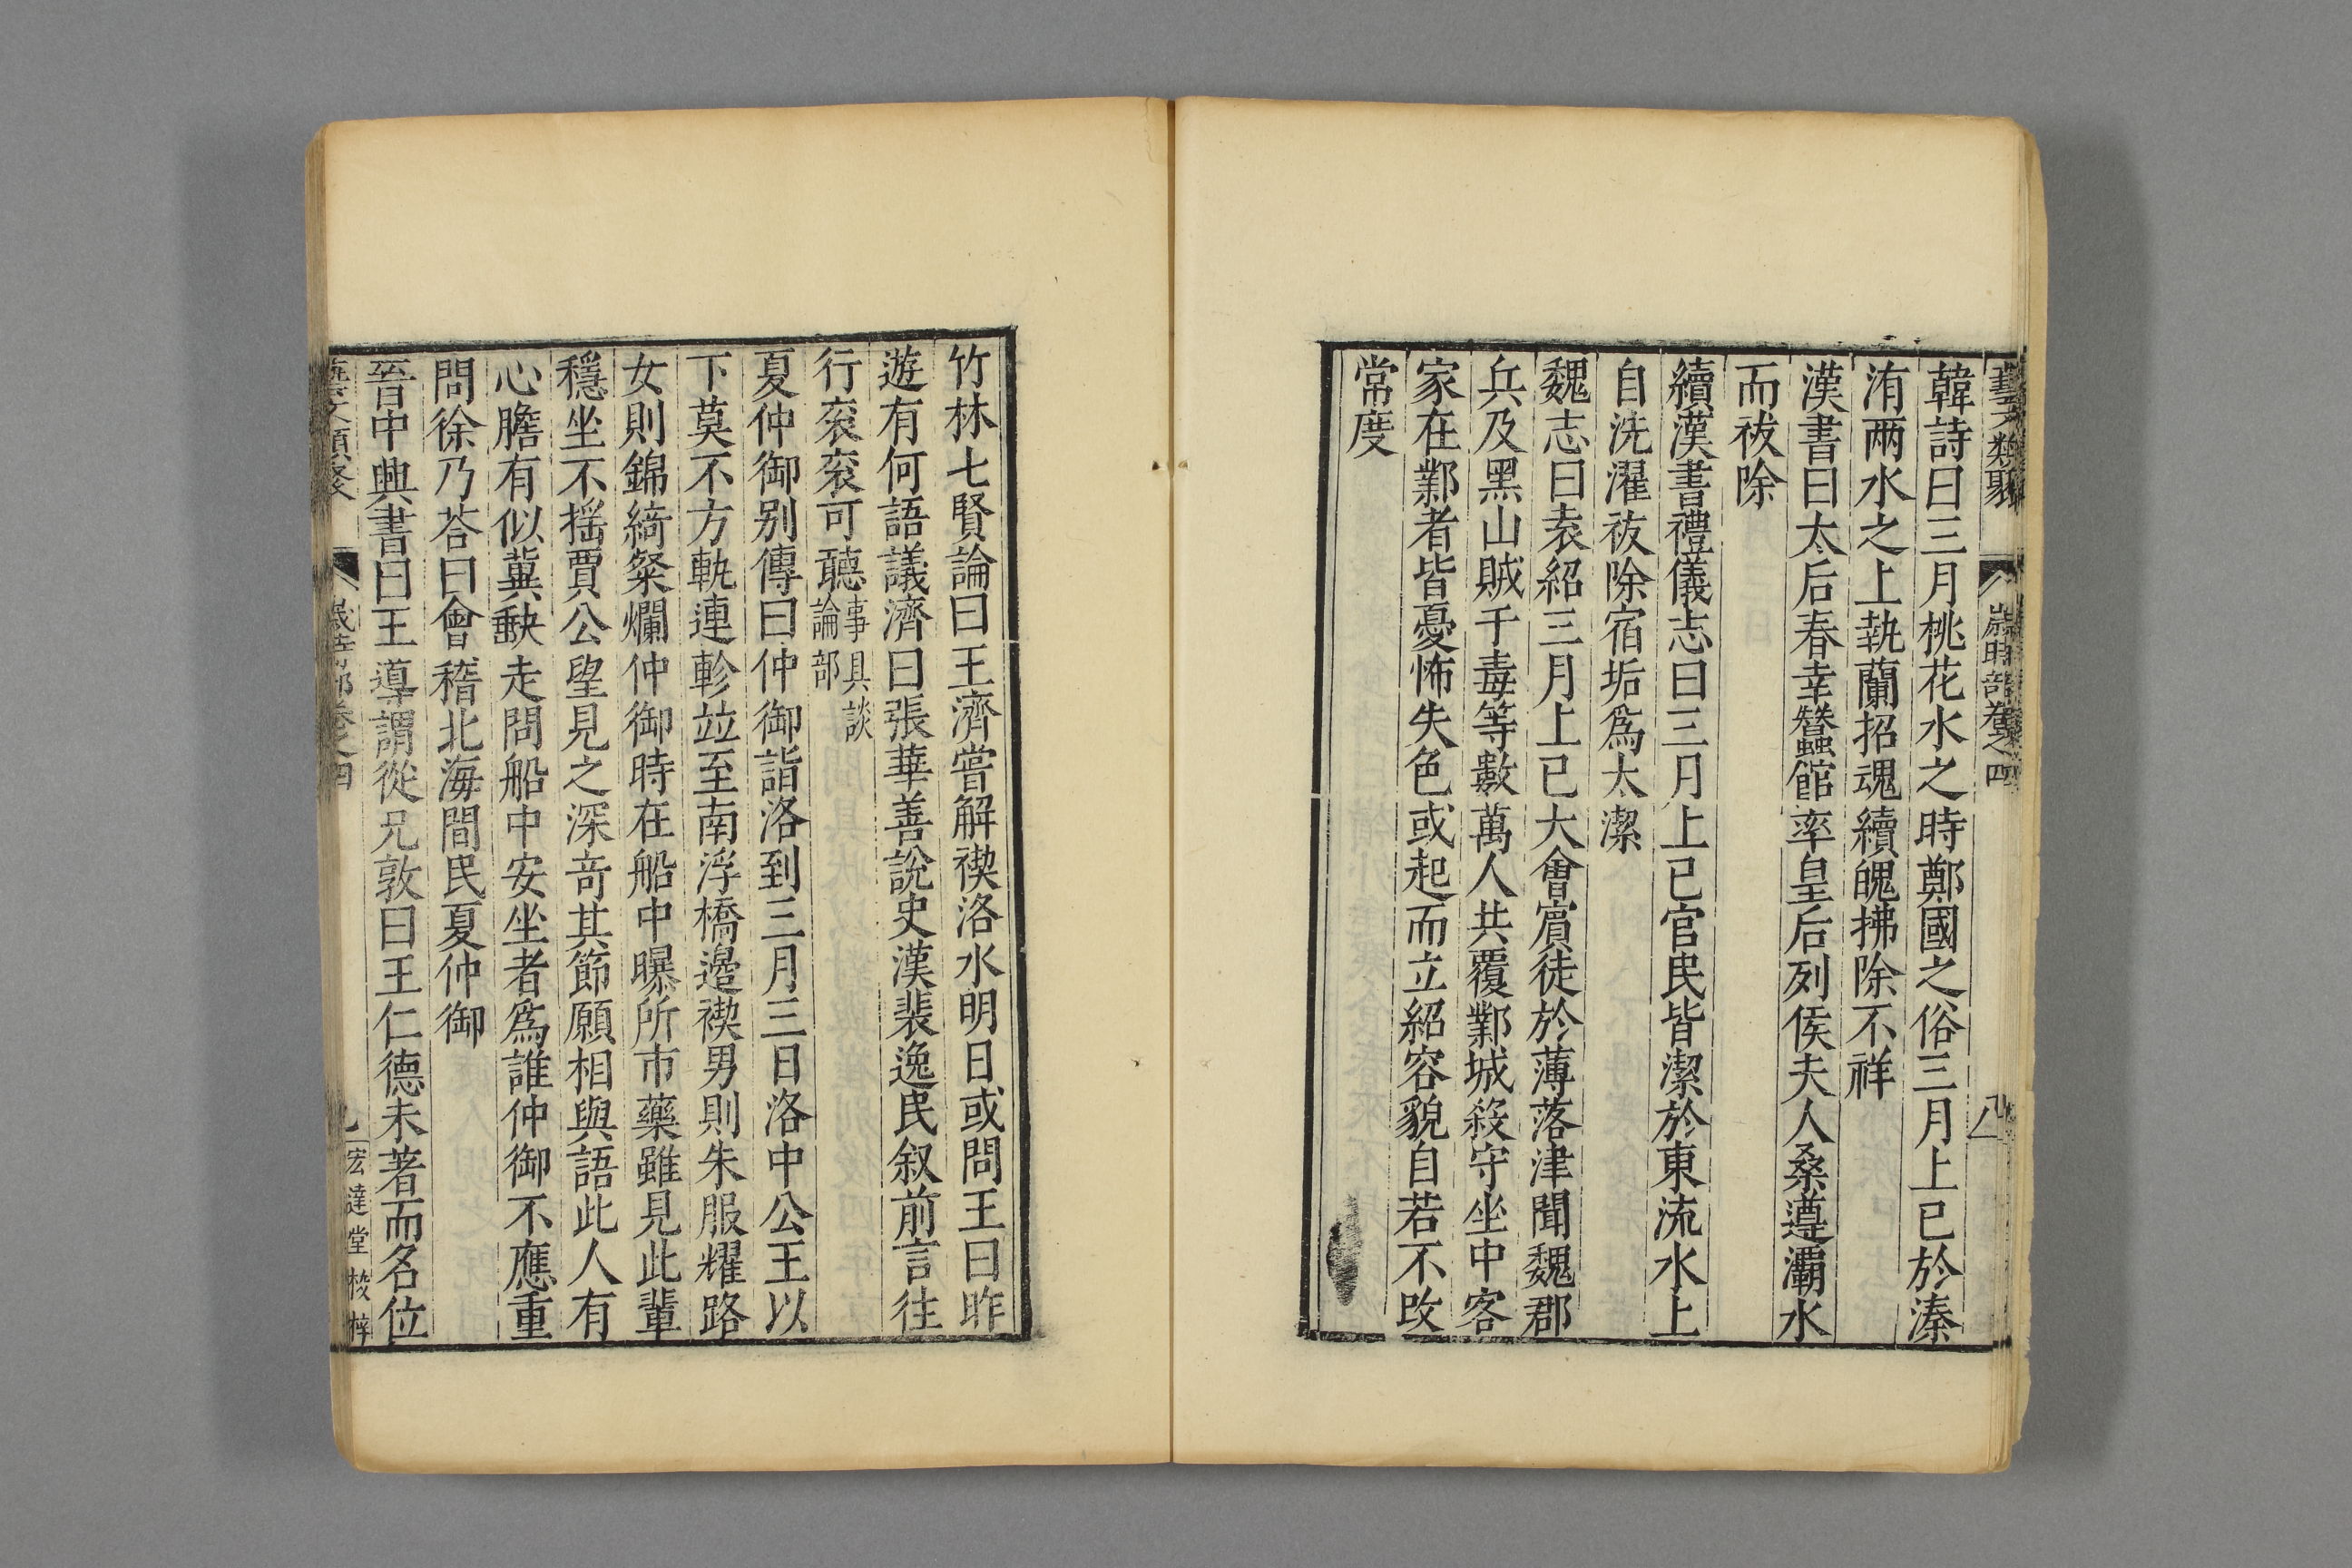 藝文類聚 歲時部卷之四 八
韓詩曰三月桃花水之時鄭國之俗三月上巳於溱
洧兩水之上執蘭招魂續魄拂除不祥
漢書曰太后春幸蠶館率皇后列侯夫人桑遵灞水
而祓除
續漢書禮儀志曰三月上巳官民皆潔於東流水上
自洗濯祓除宿垢爲太潔
魏志曰袁紹三月上巳大會賓徒於薄落津聞魏郡
兵及黑山賊千毒等數萬人共覆鄴城殺守坐中客
家在鄴者皆憂怖失色或起而立紹容貌自若不改
常度
竹林七賢論曰王濟嘗解禊洛水明日或問王曰昨
遊有何語議濟曰張華善說史漢裴逸民叙前言往
行衮衮可聽事具談論部
夏仲御别傳曰仲御詣洛到三月三日洛中公王以
下莫不方軌連軫竝至南浮橋邊禊男則朱服耀路
女則錦綺粲爛仲御時在船中曝所市藥雖見此輩
穩坐不揺賈公望見之深奇其節願相與語此人有
心膽有似冀缺走問船中安坐者爲誰仲御不應重
問徐乃荅曰會稽北海間民夏仲御
晉中興書曰王導謂從兄敦曰王仁德未著而名位
藝文類聚 歲時部卷之四 九 宏達堂校梓